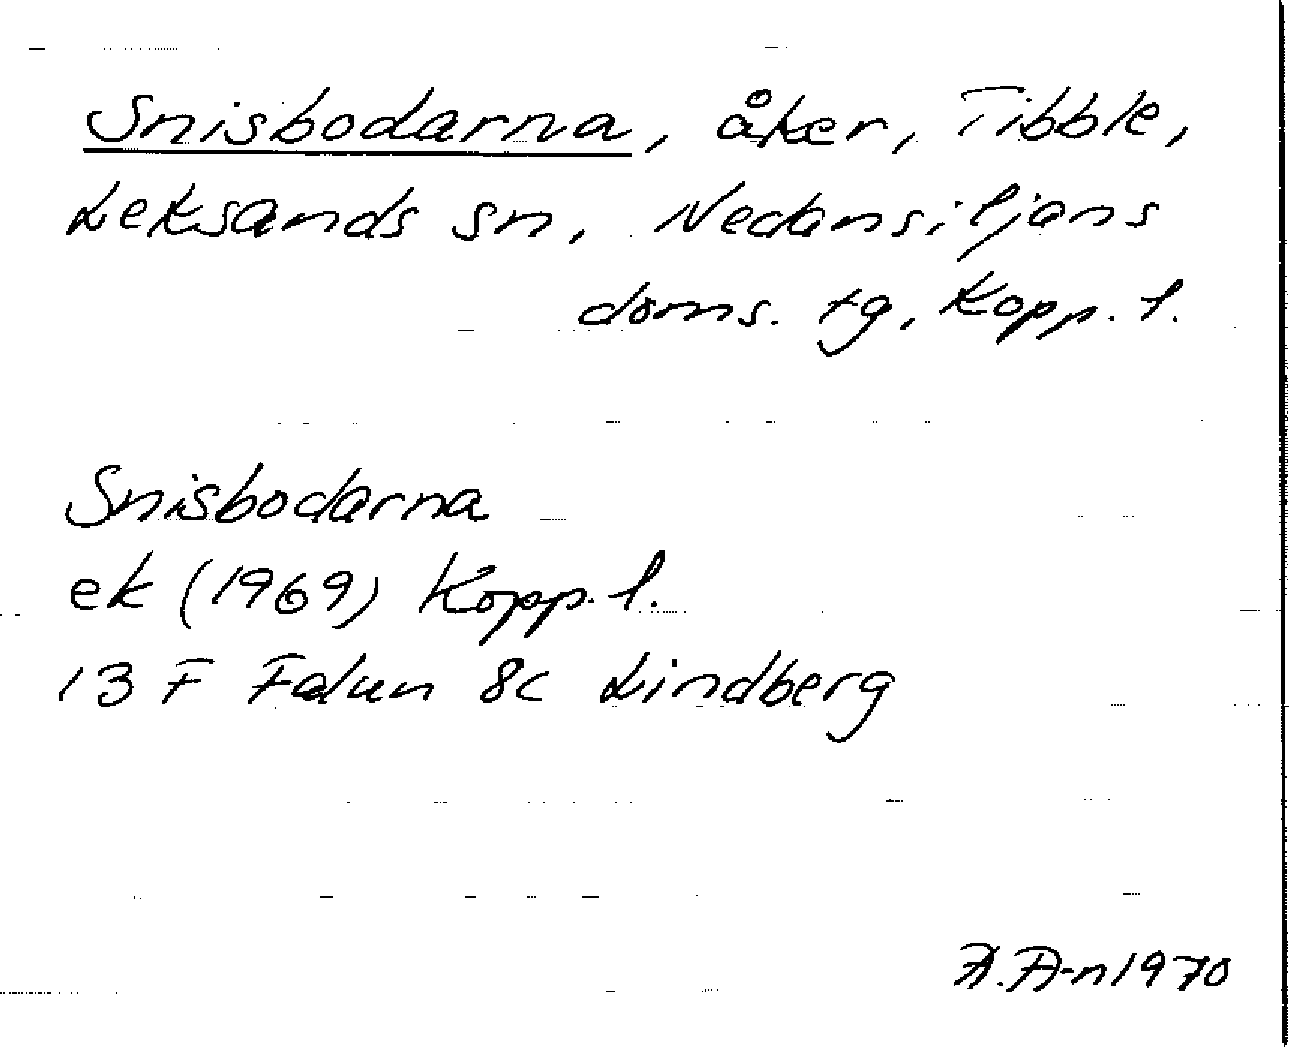 Snisbodarna, åker, Tibble,
Leksands sn, Nedansiljans
doms. tg, Kopp. l.
Snisbodarna
ek (1969) Kopp. l.
13 F Falun 8c Lindberg
A. A-n 1970